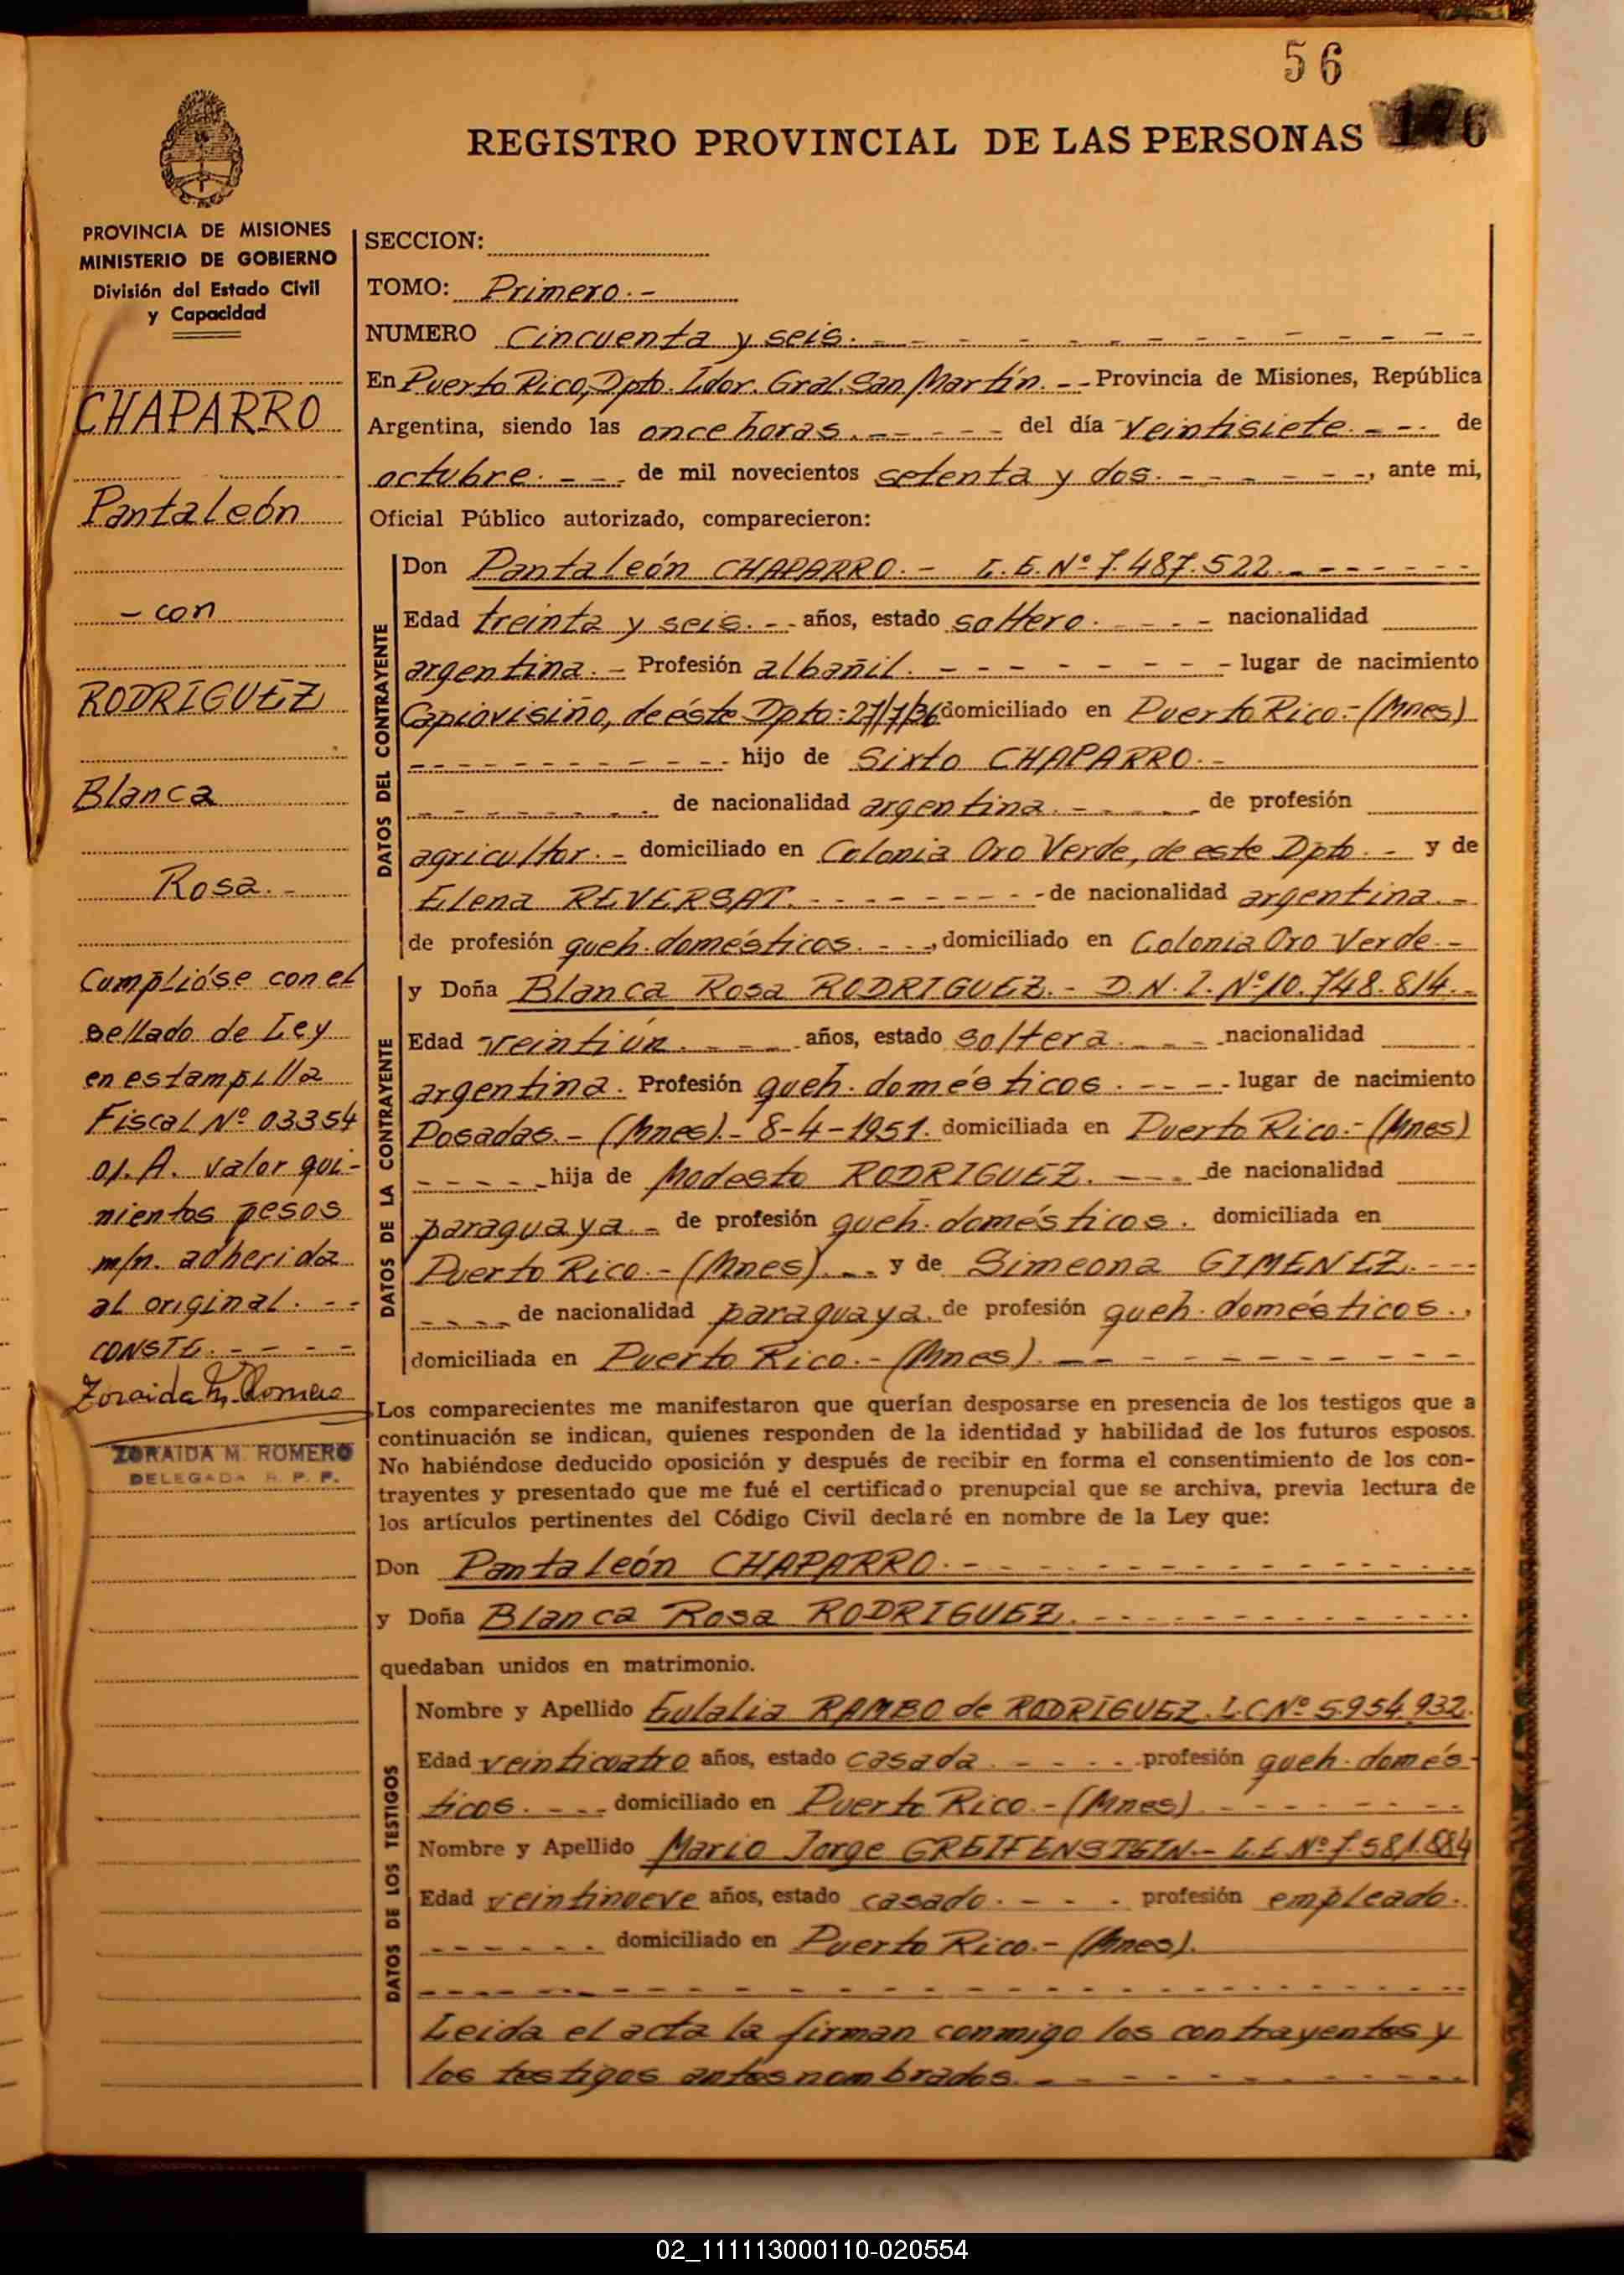 56
REGISTRO PROVINCIAL DE LAS PERSONAS 176
PROVINCIA DE MISIONES
MINISTERIO DE GOBIERNO
División del Estado Civil
y Capacidad
CHAPARRO
Pantaleón
- con
RODRÍGUEZ
Blanca
Rosa.-
Cumplióse con el
sellado de Ley
en estampilla
Fiscal Nº 03354
valor qui-
nientos pesos
m/n. adherida
al original. - -
CONSTE. - - - -
Zoraida M. Romero
ZORAIDA M. ROMERO
DELEGADA R. P. P.
SECCION:
TOMO: Primero.-
NUMERO Cincuenta y seis. - - - - - - - - - -
En Puerto Rico, Dpto. Ldor. Gral. San Martín. - - Provincia de Misiones, República
Argentina, siendo las once horas. - - - - - del día veintisiete. - - - de
octubre. - - - de mil novecientos setenta y dos. - - - - - -, ante mi,
Oficial Público autorizado, comparecieron:
DATOS DEL CONTRAYENTE
Don Pantaleón CHAPARRO.- L.E. Nº 7.487.522. - - - - - -
Edad treinta y seis. - - años, estado soltero. - - - - nacionalidad
argentina. - Profesión albañil. - - - - - - - - lugar de nacimiento
Capiovisiño, de éste Dpto-27/7/36 domiciliado en Puerto Rico.-(Mnes)
- - - - - - - - - - hijo de Sixto CHAPARRO.-
- - - - - - - - de nacionalidad argentina. - - - - - de profesión
agricultor. - domiciliado en Colonia Oro Verde, de este Dpto. - y de
Elena REVERSAT. - - - - - - - - - de nacionalidad argentina. -
de profesión queh. domésticos. - - -, domiciliado en Colonia Oro Verde. -
DATOS DE LA CONTRAYENTE
y Doña Blanca Rosa RODRIGUEZ.- D.N.I. Nº 10.748.814. -
Edad veintiún. - - - - años, estado soltera. - - - nacionalidad
argentina. Profesión queh. domésticos. - - - - lugar de nacimiento
Posadas.- (Mnes).- 8-4-1951. domiciliada en Puerto Rico.-(Mnes)
- - - - - hija de Modesto RODRIGUEZ. - - - de nacionalidad
paraguaya. - de profesión queh. domésticos. domiciliada en
Puerto Rico.-(Mnes). - - y de Simeona GIMENEZ. - - -
- - - - de nacionalidad paraguaya. de profesión queh. domésticos.,
domiciliada en Puerto Rico.-(Mnes). - - - - - - - - - -
Los comparecientes me manifestaron que querían desposarse en presencia de los testigos que a
continuación se indican, quienes responden de la identidad y habilidad de los futuros esposos.
No habiéndose deducido oposición y después de recibir en forma el consentimiento de los con-
trayentes y presentado que me fué el certificado prenupcial que se archiva, previa lectura de
los artículos pertinentes del Código Civil declaré en nombre de la Ley que:
Don Pantaleón CHAPARRO. - - - - - - - - - - - -
y Doña Blanca Rosa RODRIGUEZ. - - - - - - - - - -
quedaban unidos en matrimonio.
DATOS DE LOS TESTIGOS
Nombre y Apellido Eulalia RAMBO de RODRÍGUEZ. L.C Nº 5.954.932.
Edad veinticuatro años, estado casada. - - - - profesión queh. domés-
ticos. - - - domiciliado en Puerto Rico.-(Mnes) - - - - - - -
Nombre y Apellido Mario Jorge GREIFENSTEIN.- L.E. Nº 7.581.884
Edad veintinueve años, estado casado. - - - profesión empleado.
- - - - - - domiciliado en Puerto Rico.-(Mnes).
- - - - - - - - - - - - - - - - - - - - - -
Leida el acta la firman conmigo los contrayentes y
los testigos antes nombrados. - - - - - - - - -
02_111113000110-020554